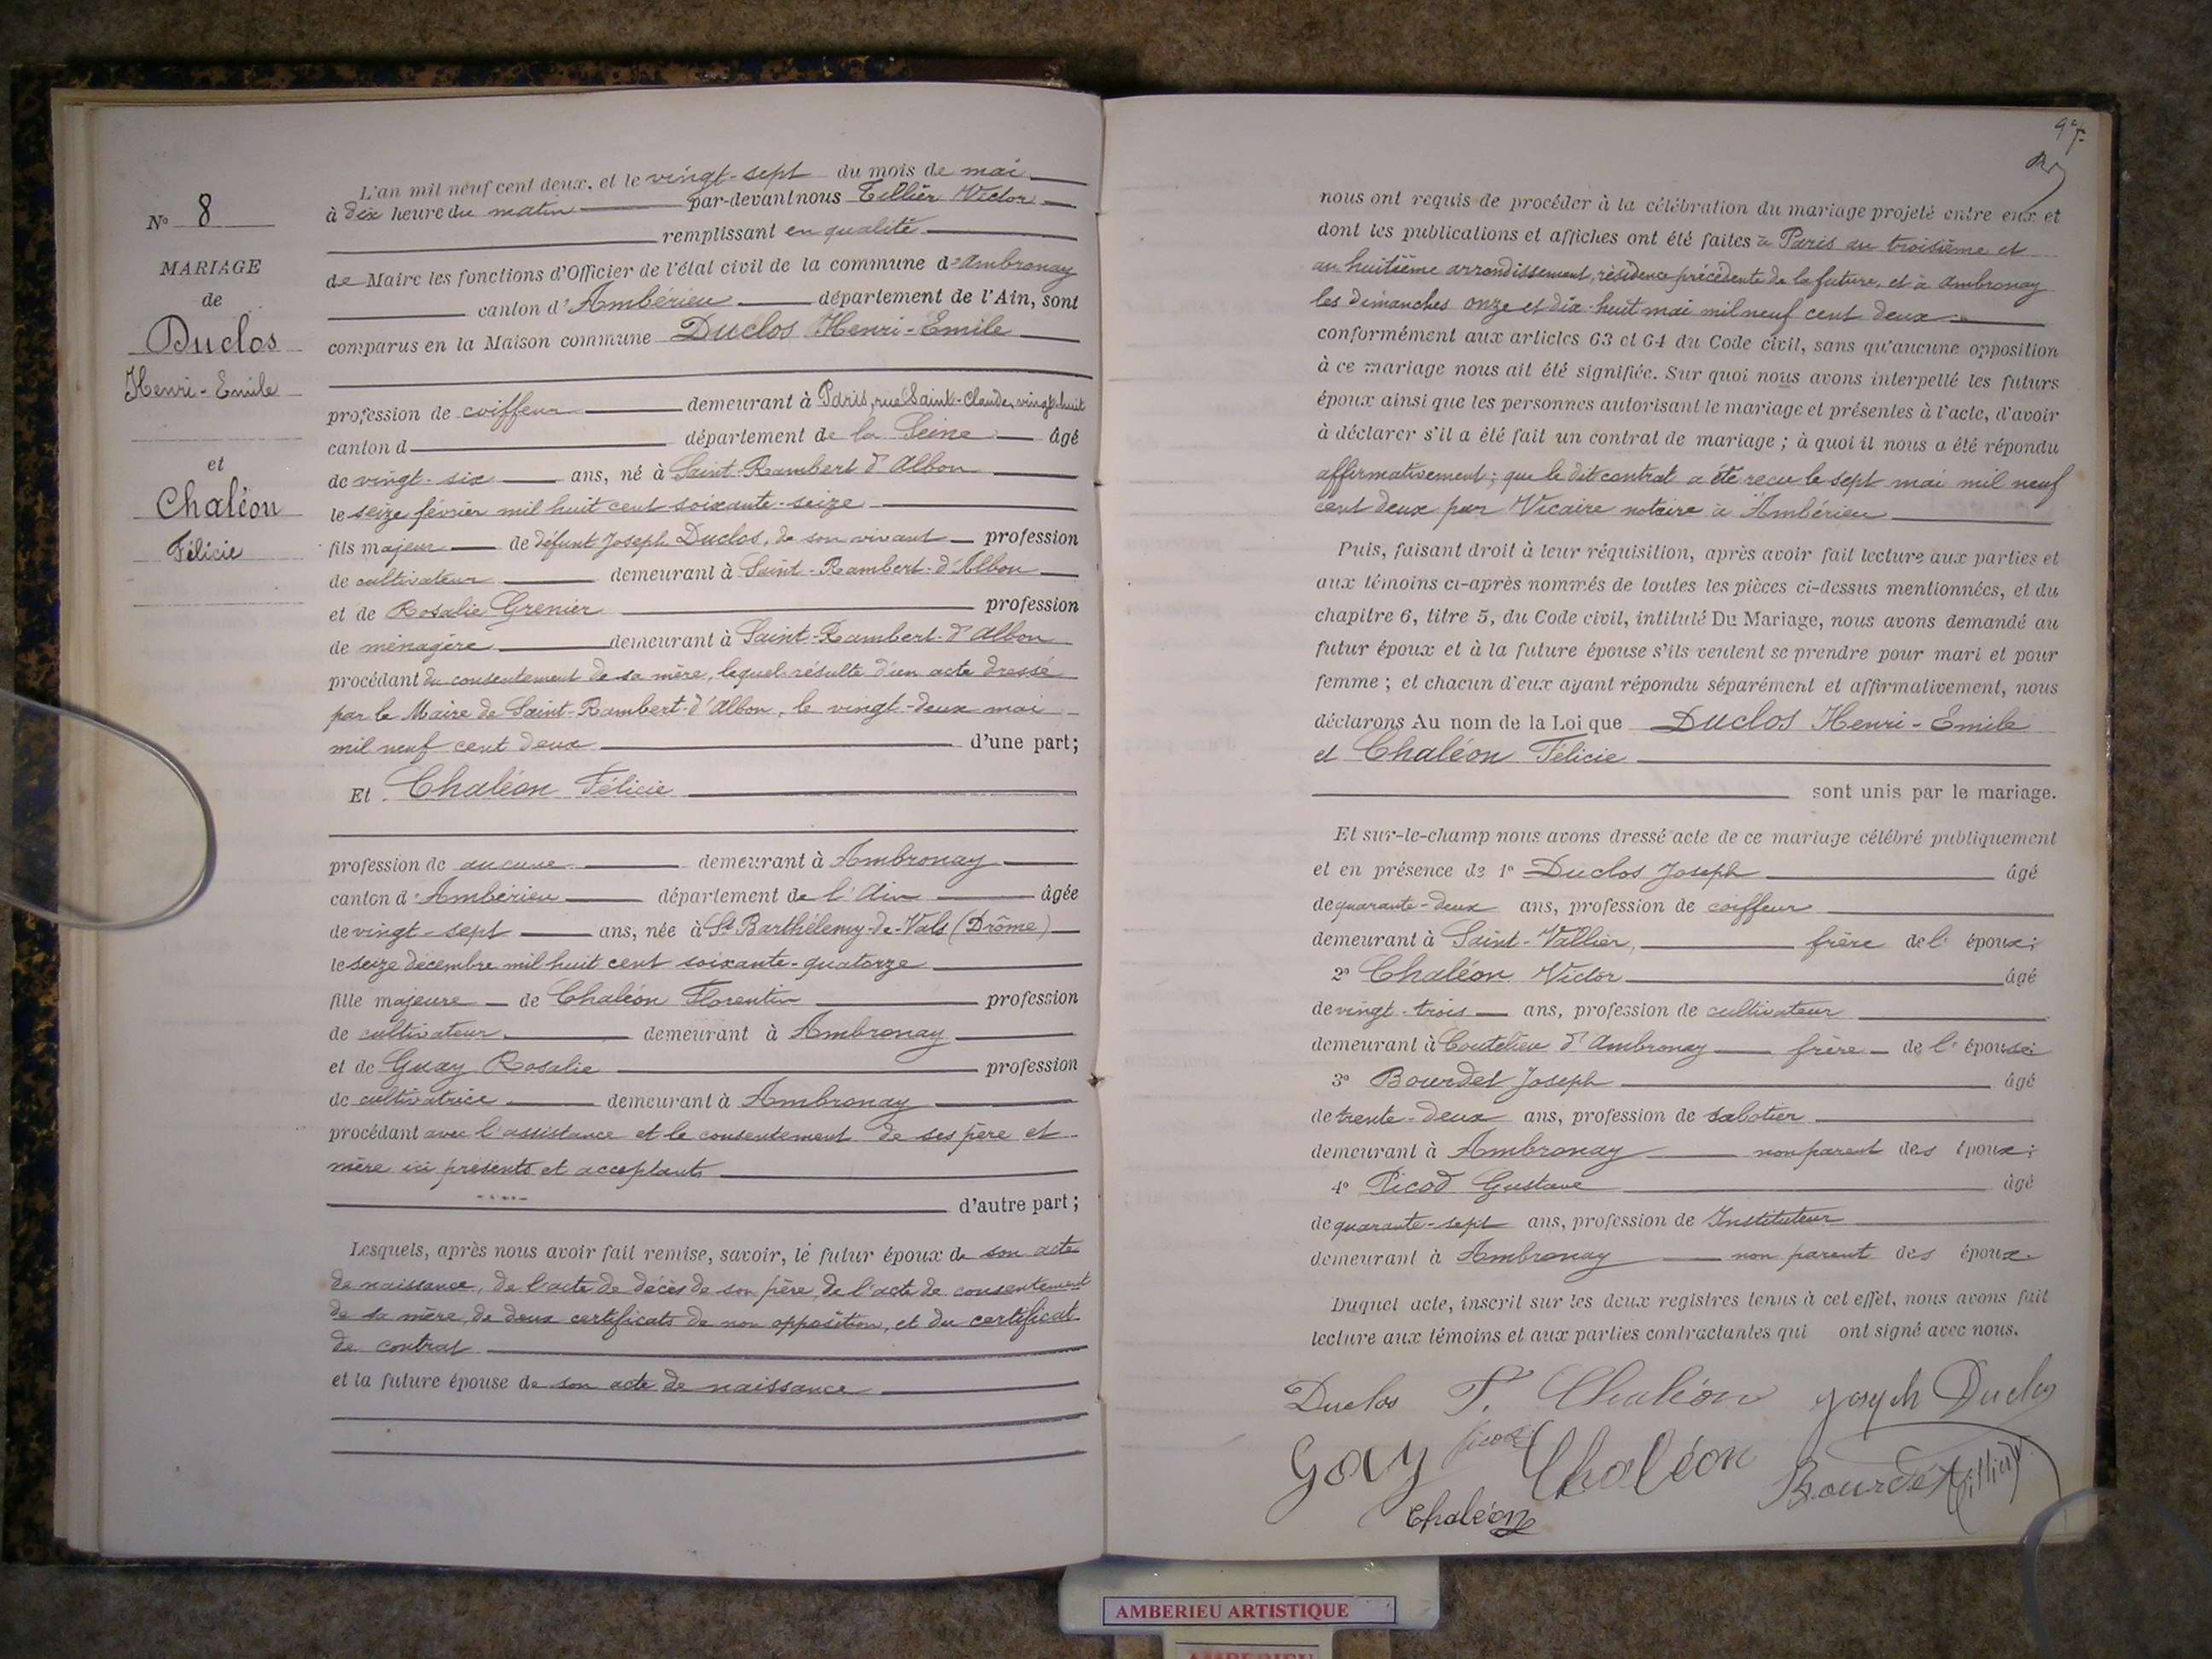 N° 8
MARIAGE
de
Duclos
Henri-Emile
et
Chaléon
Félicie
L'an mil neuf cent deux, et le vingt-sept du mois de mai
à dix heure du matin par-devant nous Tillier Victor
remplissant en qualité
de Maire les fonctions d'Officier de l'état civil de la commune d'Ambronay
canton d'Ambérieu département de l'Ain, sont
comparus en la Maison commune Duclos Henri-Emile
profession de coiffeur demeurant à Paris, rue Saint-Claude, vingt-huit
canton d département de la Seine âgé
de vingt-six ans, né à Saint-Rambert d'Albon
le seize février mil huit cent soixante-seize
fils majeur de défunt Joseph Duclos, de son vivant profession
de cultivateur demeurant à Saint-Rambert-d'Albon
et de Rosalie Grenier profession
de ménagère demeurant à Saint-Rambert-d'Albon
procédant du consentement de sa mère, lequel résulte d'un acte dressé
par le Maire de Saint-Rambert-d'Albon, le vingt-deux mai
mil neuf cent deux d'une part;
Et Chaléon Félicie
profession de aucune demeurant à Ambronay
canton d'Ambérieu département de l'Ain âgée
de vingt-sept ans, née à St Barthélemy-de-Vals (Drôme)
le seize décembre mil huit cent soixante-quatorze
fille majeure de Chaléon Florentin profession
de cultivateur demeurant à Ambronay
et de Guay Rosalie profession
de cultivatrice demeurant à Ambronay
procédant avec l'assistance et le consentement de ses père et
mère ici présents et acceptants
d'autre part;
Lesquels, après nous avoir fait remise, savoir, le futur époux de son acte
de naissance, de l'acte de décès de son père, de l'acte de consentement
de sa mère, de deux certificats de non opposition, et du certificat
de contrat
et la future épouse de son acte de naissance
nous ont requis de procéder à la célébration du mariage projeté entre eux et
dont les publications et affiches ont été faites à Paris au troisième et
au huitième arrondissement, résidence précédente de la future, et à Ambronay
les dimanches onze et dix-huit mai mil neuf cent deux
conformément aux articles 63 et 64 du Code civil, sans qu'aucune opposition
à ce mariage nous ait été signifiée. Sur quoi nous avons interpellé les futurs
époux ainsi que les personnes autorisant le mariage et présentes à l'acte, d'avoir
à déclarer s'il a été fait un contrat de mariage ; à quoi il nous a été répondu
affirmativement ; que le dit contrat a été reçu le sept mai mil neuf
cent deux par Vicaire notaire à Ambérieu
Puis, faisant droit à leur réquisition, après avoir fait lecture aux parties et
aux témoins ci-après nommés de toutes les pièces ci-dessus mentionnées, et du
chapitre 6, titre 5, du Code civil, intitulé Du Mariage, nous avons demandé au
futur époux et à la future épouse s'ils veulent se prendre pour mari et pour
femme ; et chacun d'eux ayant répondu séparément et affirmativement, nous
déclarons Au nom de la Loi que Duclos Henri-Emile
et Chaléon Félicie
sont unis par le mariage.
Et sur-le-champ nous avons dressé acte de ce mariage célébré publiquement
et en présence de 1° Duclos Joseph âgé
de quarante-deux ans, profession de coiffeur
demeurant à Saint-Vallier, frère de l' époux;
2° Chaléon Victor âgé
de vingt-trois ans, profession de cultivateur
demeurant à Coutelieu d'Ambronay frère de l' épouse;
3° Bourdet Joseph âgé
de trente-deux ans, profession de sabotier
demeurant à Ambronay non parent des époux;
4° Picod Gustave âgé
de quarante-sept ans, profession de Instituteur
demeurant à Ambronay non parent des époux.
Duquel acte, inscrit sur les deux registres tenus à cet effet, nous avons fait
lecture aux témoins et aux parties contractantes qui ont signé avec nous.
Duclos F. Chaléon Joseph Duclos
Gay Picod Chaléon Bourdet Tillier
Chaléon
AMBERIEU ARTISTIQUE
AMBERIEU